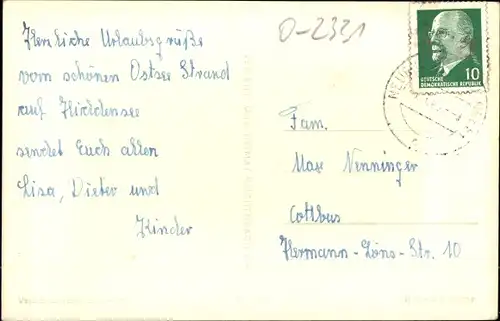 Herzliche Urlaubsgrüße
vom schönen Ostsee Strand
auf Hiddensee
sendet Euch allen
Lisa, Dieter und
Kinder
O-2331
10
DEUTSCHE
DEMOKRATISCHE REPUBLIK
Fam.
Max Nenninger
Cottbus
Hermann-Löns-Str. 10